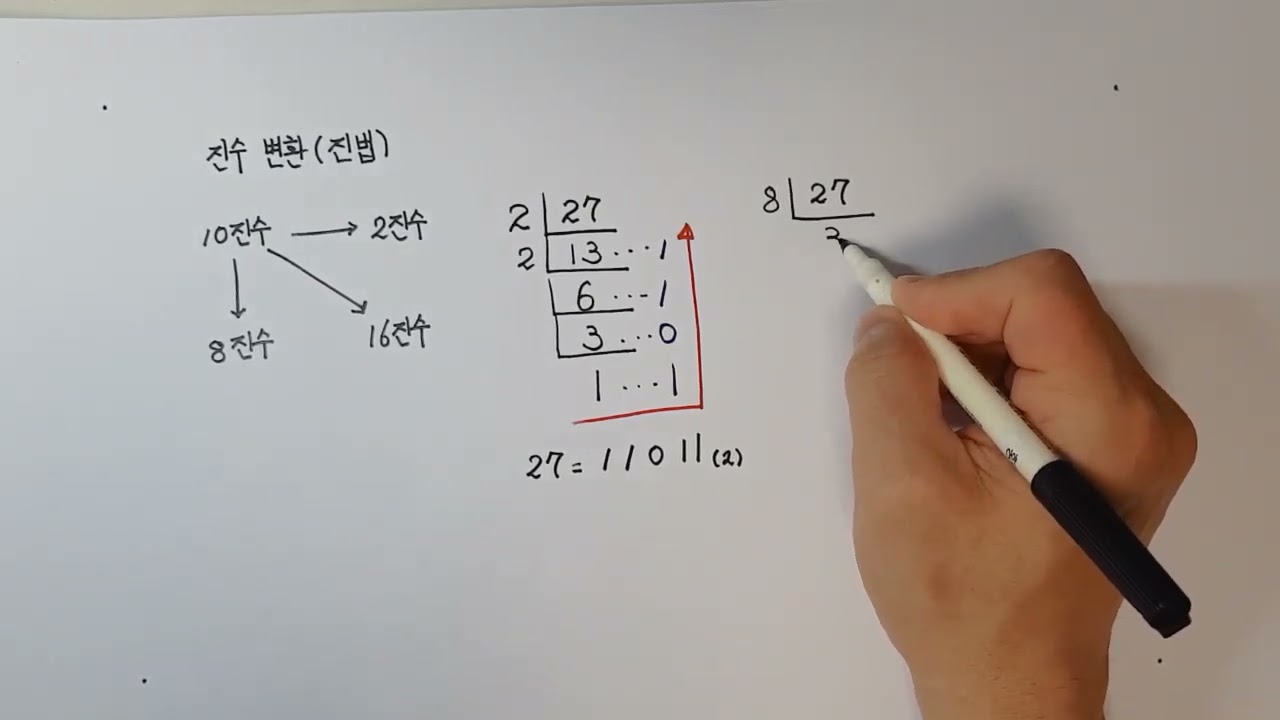 진수 변환(진법)
10진수 → 2진수
8진수 16진수
2 27
2 13...1
6...1
3...0
1...1
27 = 11011(2)
8 27